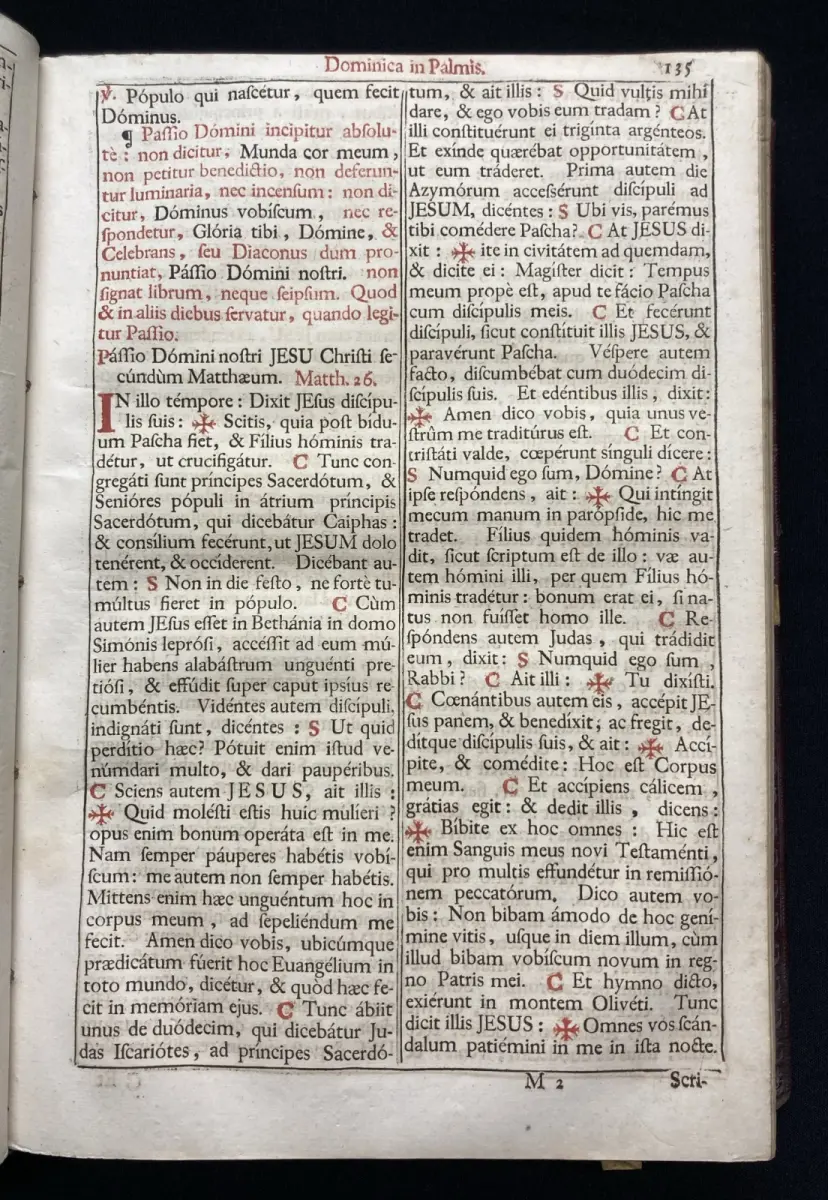 Dominica in Palmis. 135
℣. Pópulo qui naſcétur, quem fecit
Dóminus.
¶ Paſſio Dómini incipitur abſolu-
tè: non dicitur, Munda cor meum,
non petitur benedictio, non deferun-
tur luminaria, nec incenſum: non di-
citur, Dóminus vobíſcum, nec re-
ſpondetur, Glória tibi, Dómine, &
Celebrans, ſeu Diaconus dum pro-
nuntiat, Páſſio Dómini noſtri. non
ſignat librum, neque ſeipſum. Quod
& in aliis diebus ſervatur, quando legi-
tur Paſſio.
Páſſio Dómini noſtri JESU Chriſti ſe-
cúndùm Matthæum. Matth. 26.
IN illo témpore: Dixit JEſus diſcípu-
lis ſuis: ✠ Scitis, quia poſt bídu-
um Paſcha fiet, & Fílius hóminis tra-
détur, ut crucifigátur. C Tunc con-
gregáti ſunt príncipes Sacerdótum, &
Senióres pópuli in átrium príncipis
Sacerdótum, qui dicebátur Caiphas:
& consílium fecérunt, ut JESUM dolo
tenérent, & occíderent. Dicébant au-
tem: S Non in die feſto, ne fortè tu-
múltus fieret in pópulo. C Cùm
autem JEſus eſſet in Bethánia in domo
Simónis leproſi, acceſſit ad eum mú-
lier habens alabáſtrum unguénti pre-
tióſi, & effúdit ſuper caput ipsíus re-
cumbéntis. Vidéntes autem diſcípuli,
indignáti ſunt, dicéntes: S Ut quid
perdítio hæc? Pótuit enim iſtud ve-
númdari multo, & dari paupéribus.
C Sciens autem JESUS, ait illis:
✠ Quid moléſti eſtis huic mulíeri?
opus enim bonum operáta eſt in me.
Nam ſemper páuperes habétis vobíſ-
ſcum: me autem non ſemper habétis.
Mittens enim hæc unguéntum hoc in
corpus meum, ad ſepeliéndum me
fecit. Amen dico vobis, ubicúmque
prædicátum fúerit hoc Euangélium in
toto mundo, dicétur, & quòd hæc fe-
cit in memóriam ejus. C Tunc ábiit
unus de duódecim, qui dicebátur Ju-
das Iſcariótes, ad príncipes Sacerdó-
tum, & ait illis: S Quid vultis mihi
dare, & ego vobis eum tradam? C At
illi conſtituérunt ei trigínta argénteos.
Et exínde quærébat opportunitátem,
ut eum tráderet. Prima autem die
Azymórum acceſsérunt diſcípuli ad
JESUM, dicéntes: S Ubi vis, parémus
tibi comédere Paſcha? C At JESUS di-
xit: ✠ ite in civitátem ad quemdam,
& dícite ei: Magíſter dicit: Tempus
meum propè eſt, apud te fácio Paſcha
cum diſcípulis meis. C Et fecérunt
diſcípuli, ſicut conſtítuit illis JESUS, &
paravérunt Paſcha. Véſpere autem
facto, diſcumbébat cum duódecim di-
ſcípulis ſuis. Et edéntibus illis, dixit:
✠ Amen dico vobis, quia unus ve-
ſtrûm me traditúrus eſt. C Et con-
triſtáti valde, cœpérunt sínguli dícere:
S Numquid ego ſum, Dómine? C At
ipſe reſpóndens, ait: ✠ Qui intíngit
mecum manum in parópſide, hic me
tradet. Fílius quidem hóminis va-
dit, ſicut ſcriptum eſt de illo: væ au-
tem hómini illi, per quem Fílius hó-
minis tradétur: bonum erat ei, ſi na-
tus non fuíſſet homo ille. C Re-
ſpóndens autem Judas, qui trádidit
eum, dixit: S Numquid ego ſum,
Rabbi? C Ait illi: ✠ Tu dixíſti.
C Cœnántibus autem eis, accépit JE-
ſus panem, & benedíxit; ac fregit, de-
dítque diſcípulis ſuis, & ait: ✠ Accí-
pite, & comédite: Hoc eſt Corpus
meum. C Et accípiens cálicem,
grátias egit: & dedit illis, dicens:
✠ Bíbite ex hoc omnes: Hic eſt
enim Sanguis meus novi Teſtaménti,
qui pro multis effundétur in remiſſió-
nem peccatórum. Dico autem vo-
bis: Non bibam ámodo de hoc gení-
mine vitis, uſque in diem illum, cùm
illud bibam vobíſcum novum in reg-
no Patris mei. C Et hymno dicto,
exiérunt in montem Olivéti. Tunc
dicit illis JESUS: ✠ Omnes vos ſcán-
dalum patiémini in me in iſta nocte.
M 2 Scri-